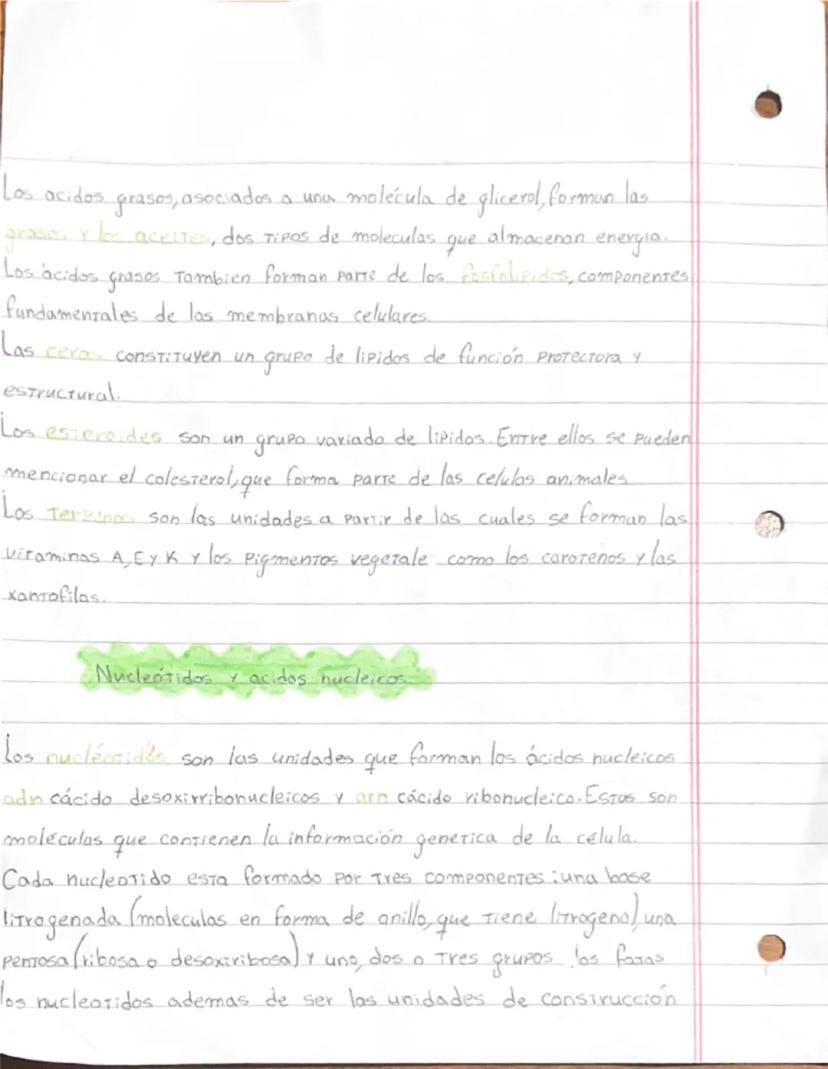 Los acidos grasos, asociados a una molécula de glicerol, forman las
grasas y los aceites, dos tipos de moleculas que almacenan energia.
Los ácidos grasos Tambien forman parte de los fosfolipidos, componentes
fundamentales de las membranas celulares.
Las ceras constituyen un grupo de lipidos de función protectora y
estructural.
Los esteroides son un grupo variado de lipidos. Entre ellos se pueden
mencionar el colesterol, que forma parte de las celulas animales
Los Terpenos son las unidades a partir de las cuales se forman las
vitaminas A, E y K y los pigmentos vegetale como los carotenos y las
xantofilas.
Nucleótidos y acidos nucleicos
Los nucléotidos son las unidades que forman los ácidos nucleicos
adn cácido desoxirribonucleicos y arn cácido ribonucleico. Estas son
moléculas que contienen la información genetica de la célula.
Cada nucleotido esta formado por tres componentes: una base
litrogenada (moleculas en forma de anillo, que tiene litrogeno), una
pentosa (ribosa o desoxiribosa) y uno, dos o tres grupos los fatas
los nucleotidos ademas de ser las unidades de construcción